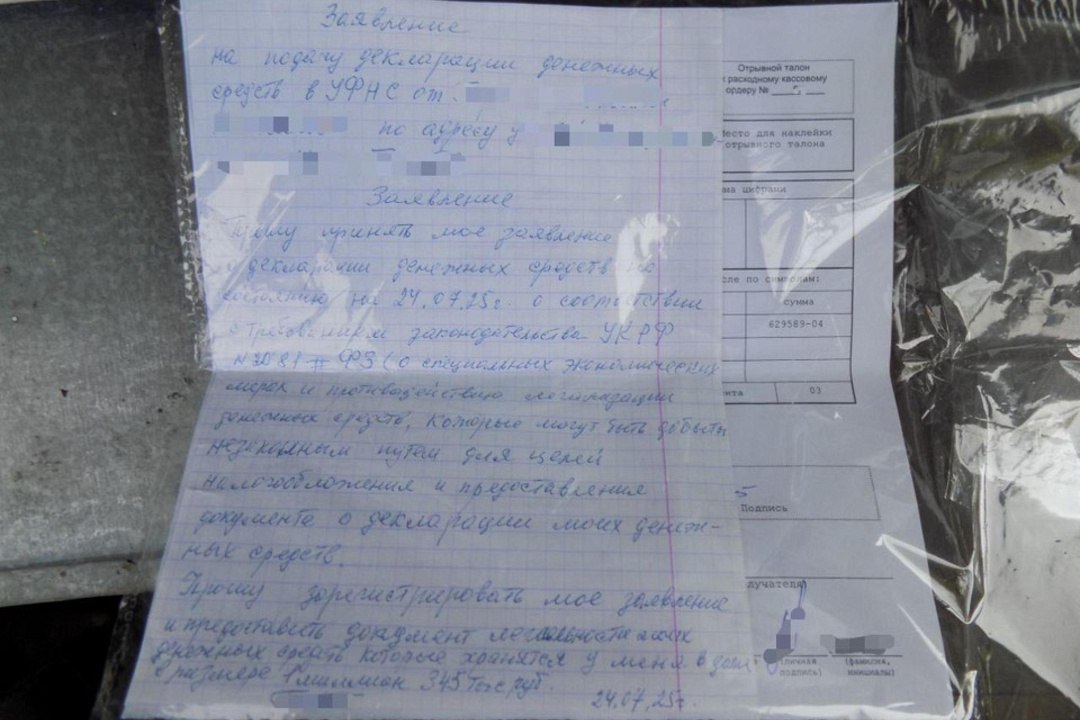 Заявление
на подачу декларации денежных
средств в УФНС от:
по адресу у
Заявление
Прошу принять мое заявление
о декларации денежных средств по
состоянию на 24.07.25г. о соответствии
с требованием законодательства УКРФ
ФЗ (о специальных экономических
мерах и противодействию легализации
денежных средств, которые могут быть добыты
незаконным путем для целей
налогообложения и предоставления
документа о декларации моих денеж-
ных средств.
Прошу зарегистрировать мое заявление
и предоставить документ легальности моих
денежных средств которые хранятся у меня в доме
в размере 1 миллион 345 тыс руб.
24.07.25г.
Отрывной талон
расходному кассовому
ордеру №
Место для наклейки
отрывного талона
цифрами
по символам:
сумма
629589-04
03
5
Подпись
(личная подпись)
(фамилия, инициалы)